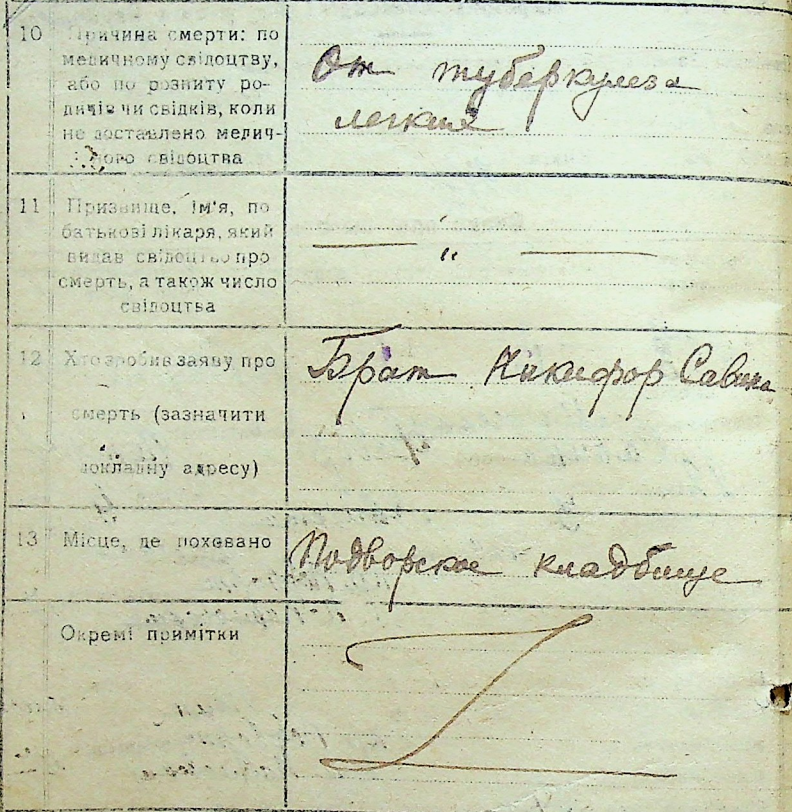 10 Причина смерти: по
медичному свідоцтву,
або по розпиту ро-
дичів чи свідків, коли
не доставлено медич-
ного свідоцтва
От туберкулеза
легких
11 Призвище, ім'я, по
батькові лікаря, який
видав свідоцтво про
смерть, а також число
свідоцтва
— " —
12 Хто зробив заяву про
смерть (зазначити
докладну адресу)
Брат Никифор Савина
13 Місце, де поховано
Подворское кладбище
Окремі примітки